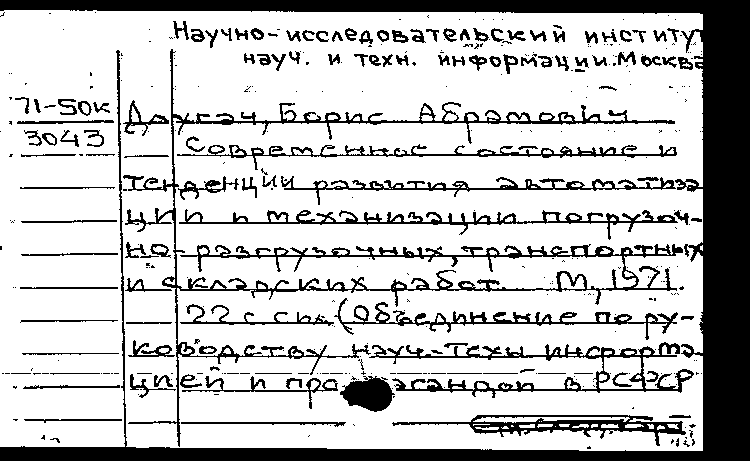 Научно-исследовательский институт
науч. и техн. информации. Москва
71-50к
3043
Довгач, Борис Абрамович.
Современное состояние и
тенденции развития автоматиза
ции и механизации погрузоч-
но-разгрузочных, транспортных
и складских работ. М., 1971.
22 с. (Объединение по ру-
ководству науч.-техн. информа
цией и про агандой в РСФСР
см. след. карт.